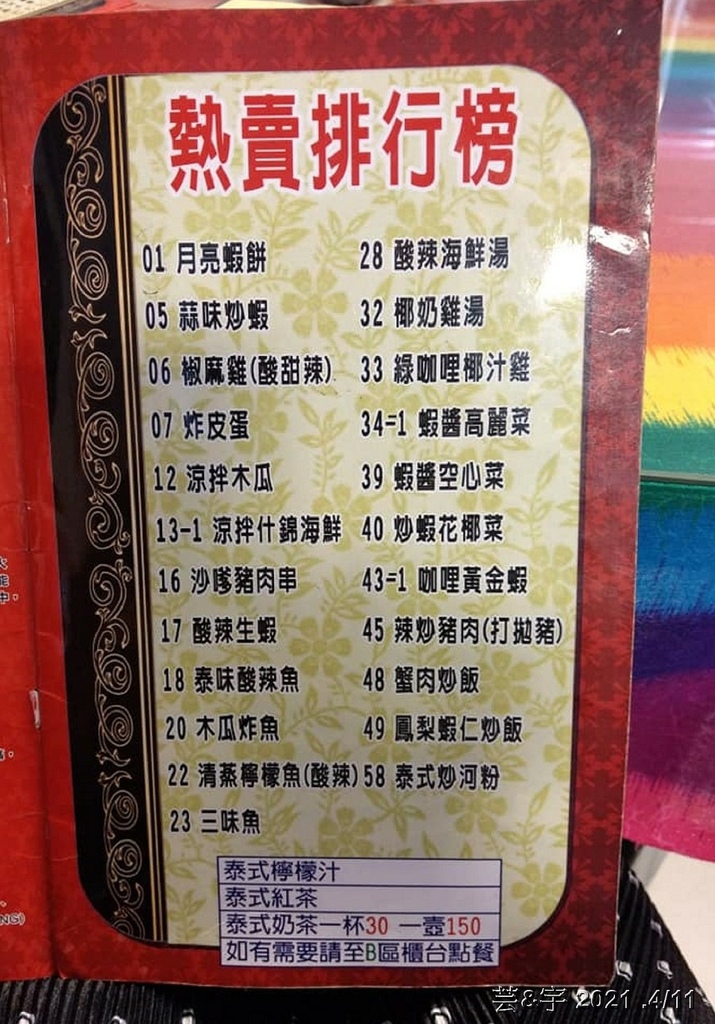 熱賣排行榜
01 月亮蝦餅
05 蒜味炒蝦
06 椒麻雞(酸甜辣)
07 炸皮蛋
12 涼拌木瓜
13-1 涼拌什錦海鮮
16 沙嗲豬肉串
17 酸辣生蝦
18 泰味酸辣魚
20 木瓜炸魚
22 清蒸檸檬魚(酸辣)
23 三味魚
28 酸辣海鮮湯
32 椰奶雞湯
33 綠咖哩椰汁雞
34-1 蝦醬高麗菜
39 蝦醬空心菜
40 炒蝦花椰菜
43-1 咖哩黃金蝦
45 辣炒豬肉(打拋豬)
48 蟹肉炒飯
49 鳳梨蝦仁炒飯
58 泰式炒河粉
泰式檸檬汁
泰式紅茶
泰式奶茶一杯30 一壺150
如有需要請至B區櫃台點餐
芸&宇 2021 .4/11